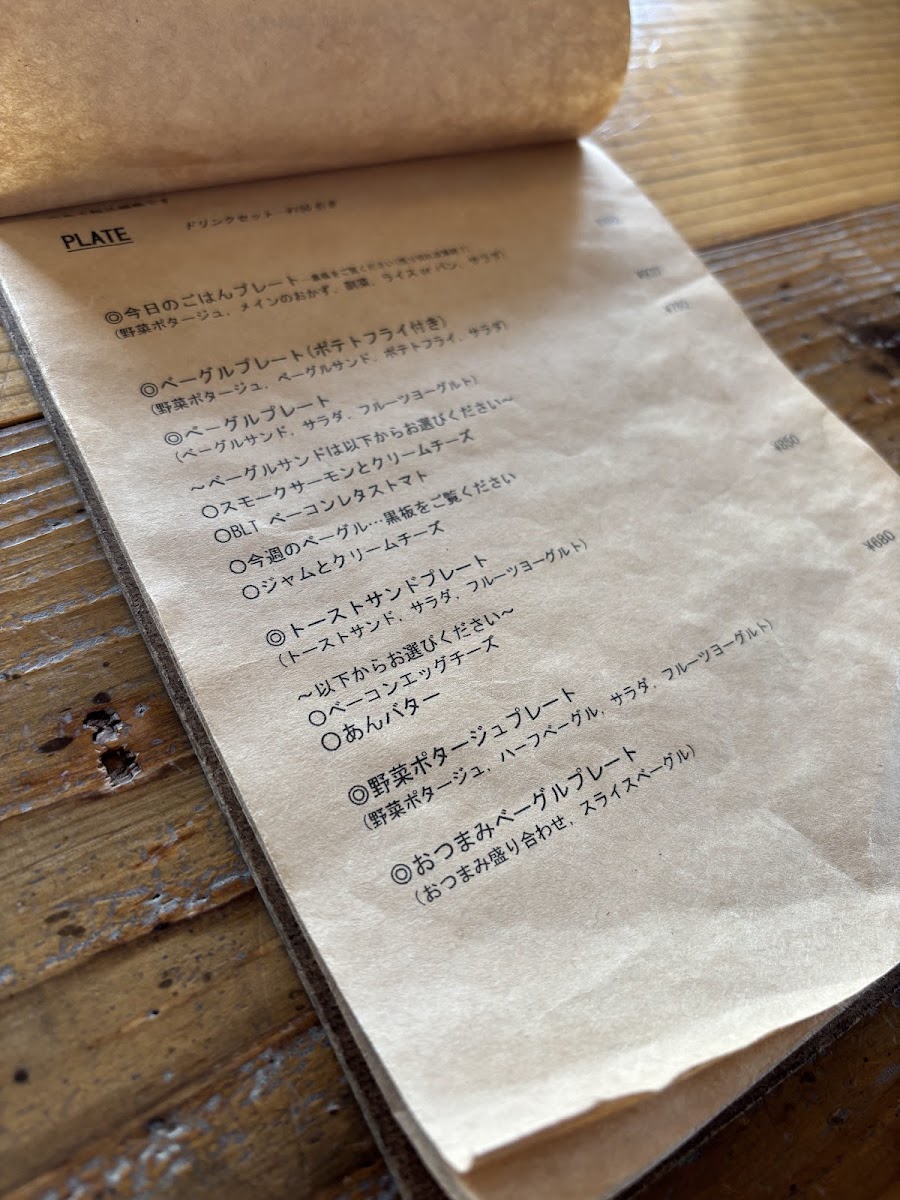 PLATE ドリンクセット
◎今日のごはんプレート
(野菜ポタージュ、メインのおかず、副菜、ライス or パン、サラダ)
◎ベーグルプレート(ポテトフライ付き)
(野菜ポタージュ、ベーグルサンド、ポテトフライ、サラダ)
◎ベーグルプレート ¥780
(ベーグルサンド、サラダ、フルーツヨーグルト)
～ベーグルサンドは以下からお選びください～
○スモークサーモンとクリームチーズ
○BLT ベーコンレタストマト
○今週のベーグル…黒板をご覧ください
○ジャムとクリームチーズ
◎トーストサンドプレート ¥850
(トーストサンド、サラダ、フルーツヨーグルト)
～以下からお選びください～
○ベーコンエッグチーズ
○あんバター
◎野菜ポタージュプレート ¥680
(野菜ポタージュ、ハーフベーグル、サラダ、フルーツヨーグルト)
◎おつまみベーグルプレート
(おつまみ盛り合わせ、スライスベーグル)